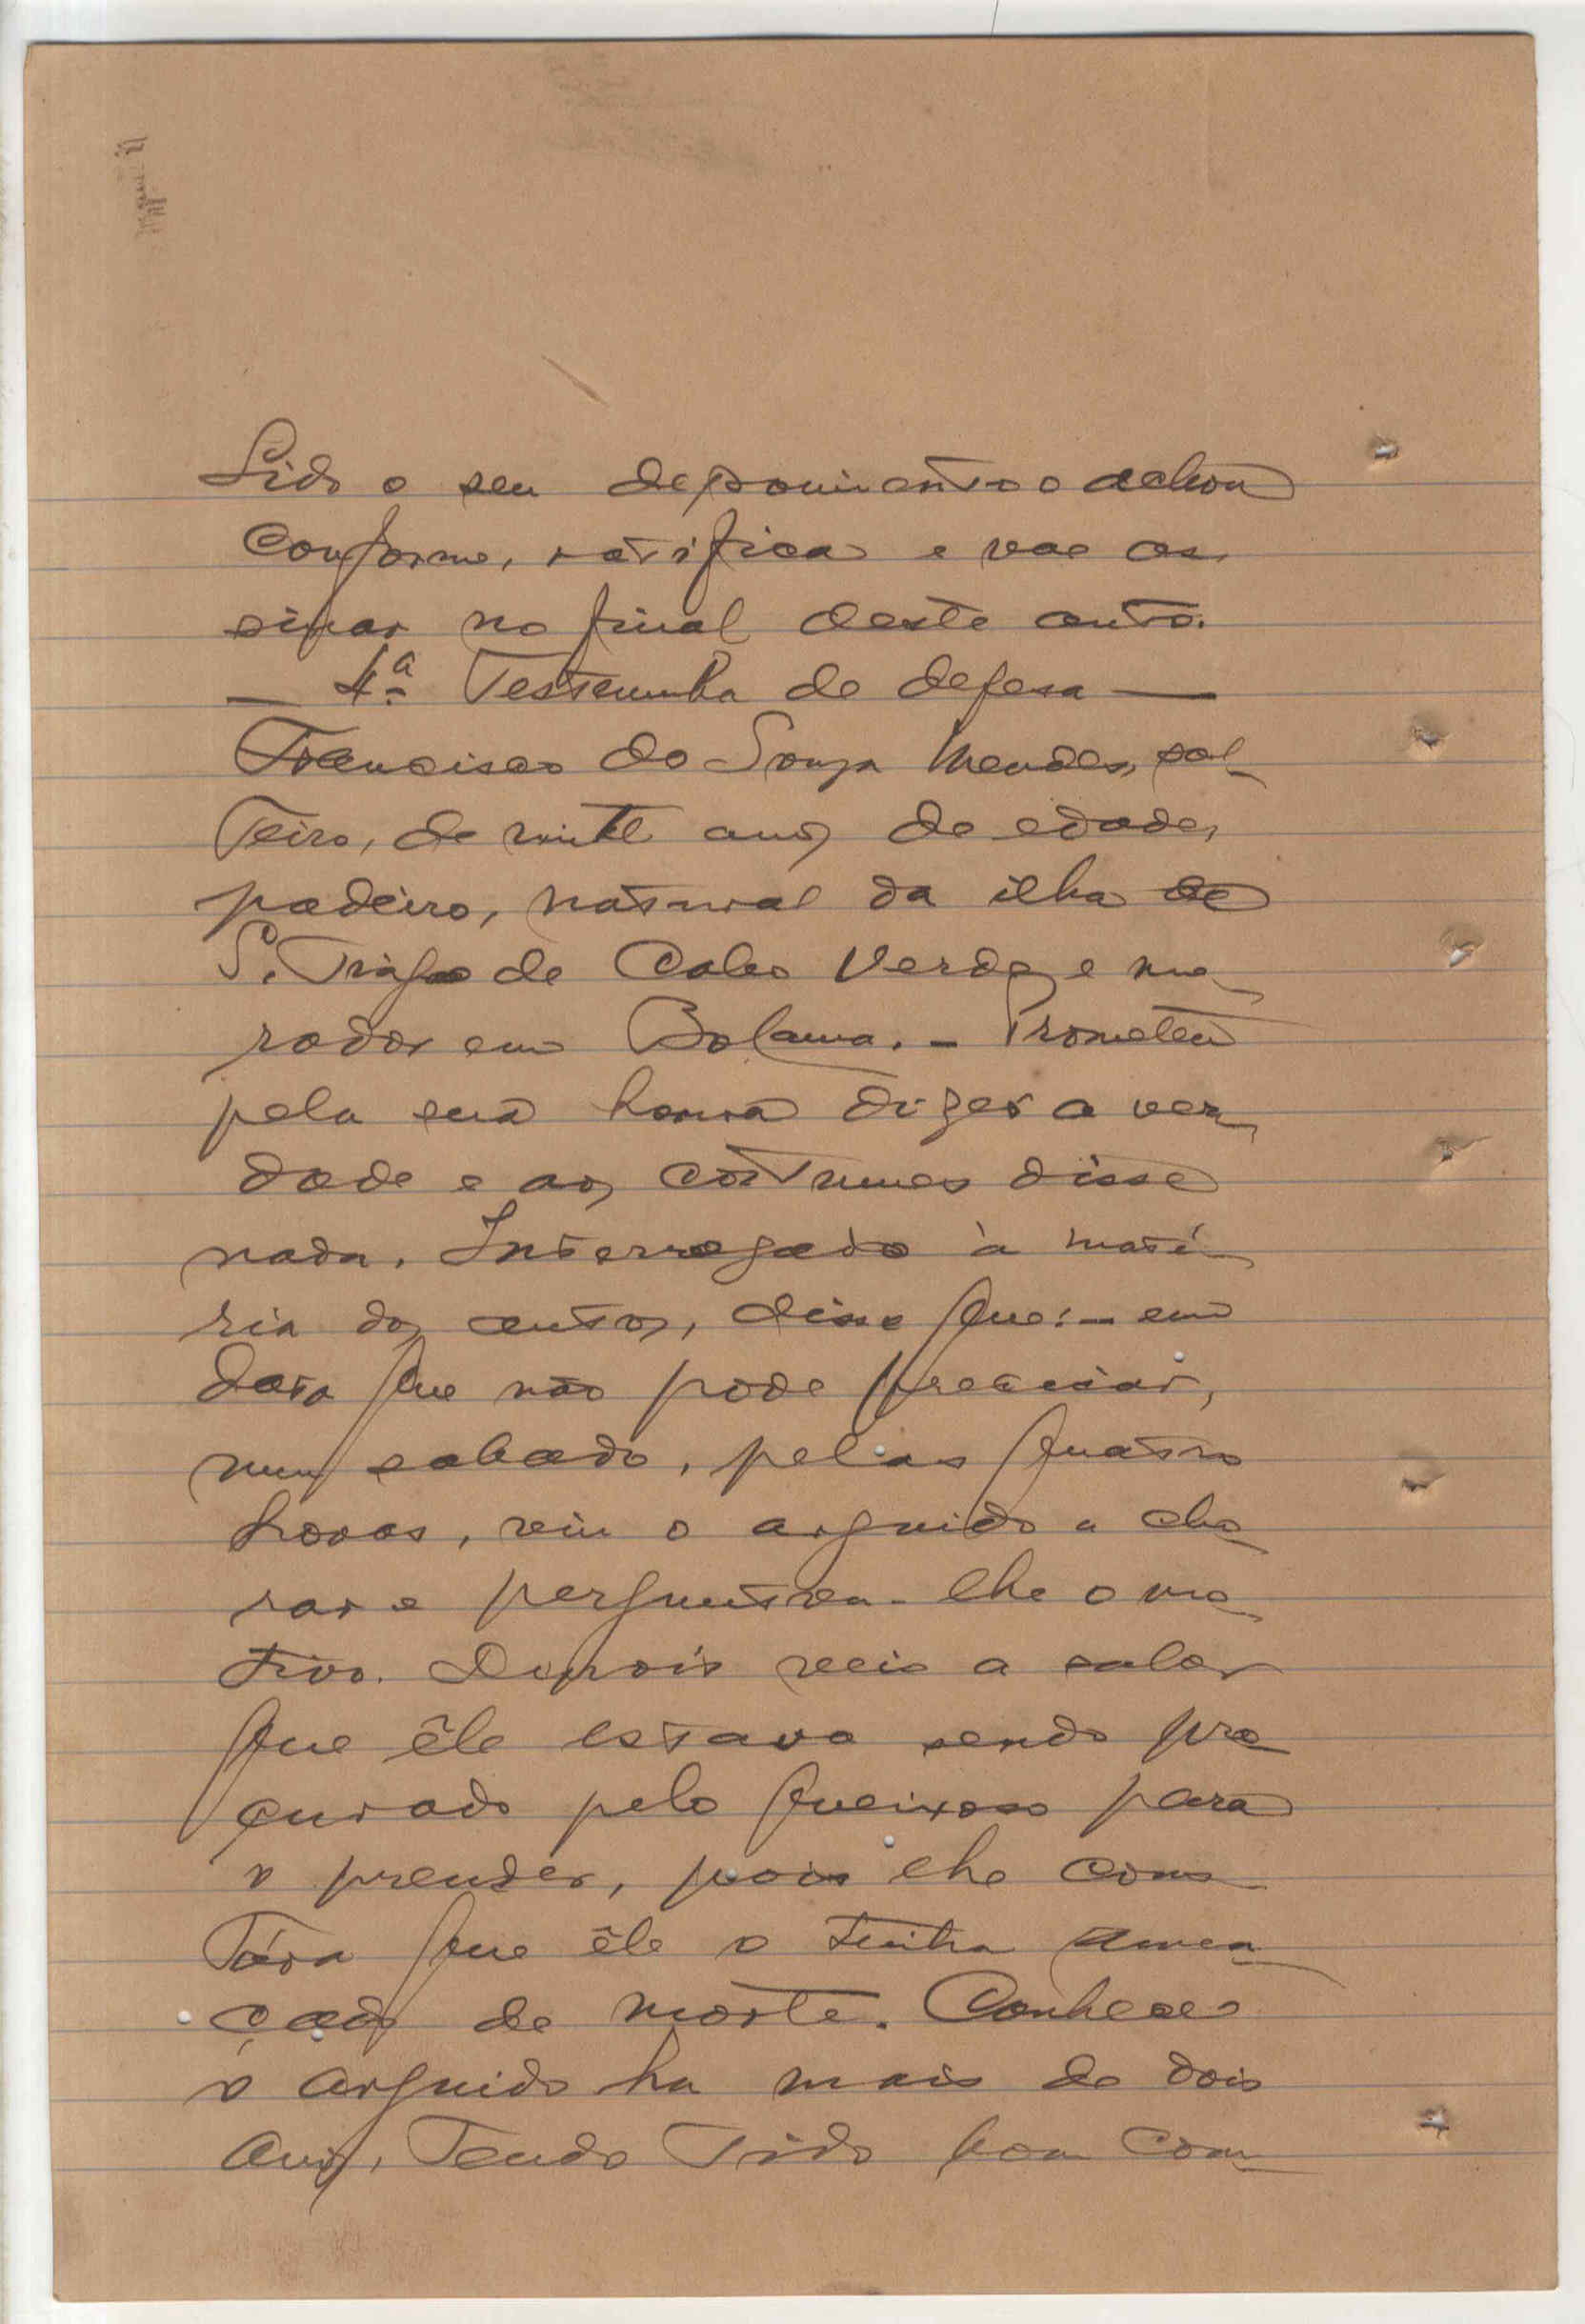 Lido o seu depoimento o achou
conforme, ratifica e vae as-
sinar no final deste auto.
— 4ª Testemunha de defesa —
Francisco de Souza Mendes, sol-
teiro, de vinte anos de edade,
padeiro, natural da ilha de
S. Tiago de Cabo Verde, e mo-
rador em Bolama. — Prometeu
pela sua honra dizer a ver-
dade e aos costumes disse
nada. Interrogado à maté-
ria dos autos, disse que: — em
data que não pode precisar,
num sabado, pelas quatro
horas, viu o arguido a cho-
rar e perguntou-lhe o mo-
tivo. Depois veio a saber
que êle estava sendo pro-
curado pelo queixoso para
o prender, pois lhe cons-
tára que êle o tinha amea-
çado de morte. Conhece
o arguido ha mais de dois
anos, tendo tido bom com-